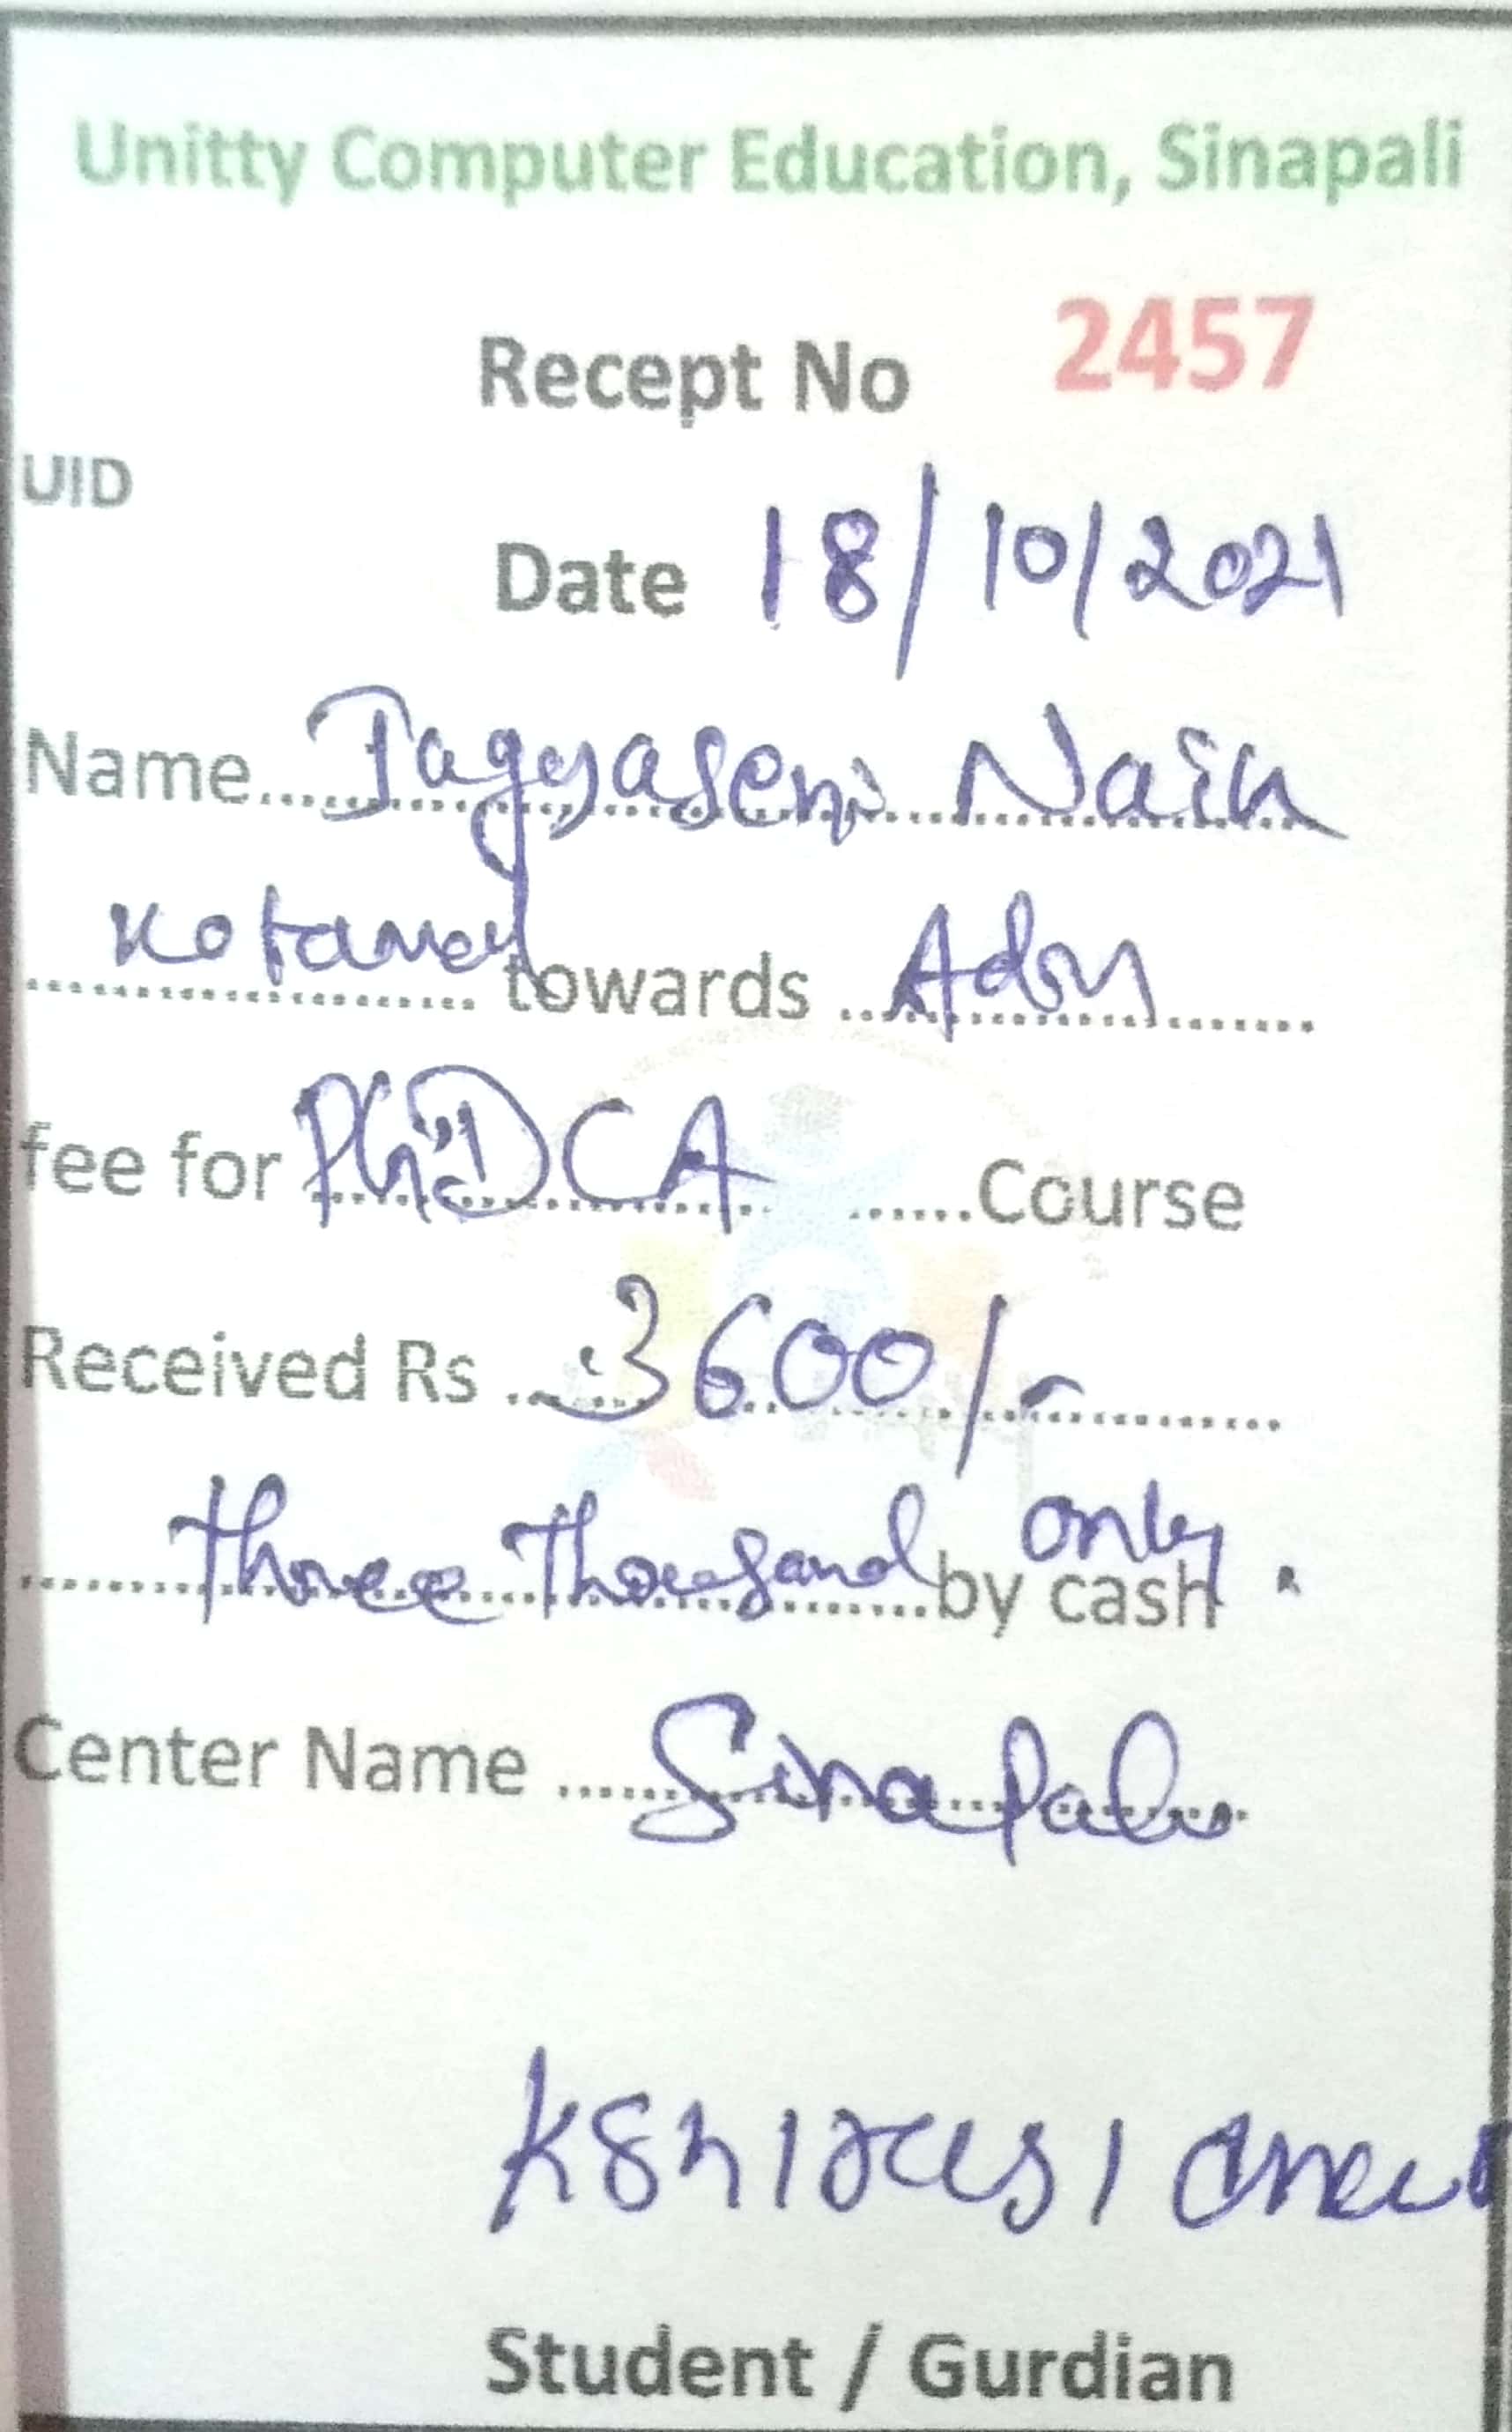 Unitty Computer Education, Sinapali
Recept No 2457
UID
Date 18/10/2021
Name Jagyaseni Naik
towards Adm
fee for PGDCA Course
Received Rs 3600/-
three Thousand only. by cash
Center Name Sinapali
Student / Gurdian